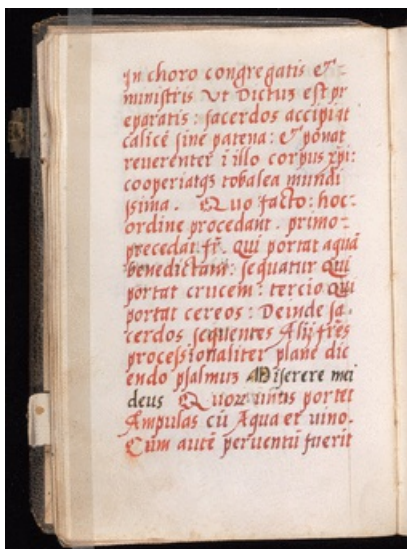 In choro congregatis &
ministris ut dictuz est pr
eparatis: sacerdos accipiat
calicē sine patena: & ponat
reuerenter ī illo corpus xp̄i:
cooperiatqz tobalea mundi
ssima. Quo facto: hoc
ordine procedant. primo
precedat fr̄. qui portat aquā
benedictam: sequatur qui
portat crucem: tercio qui
portat cereos: Deinde sa-
cerdos sequentes Alij frēs
processionaliter plane dic
endo psalmuz Miserere mei
deus Quoruz unus portet
Ampulas cū Aqua et uino.
Cum autē peruentū fuerit